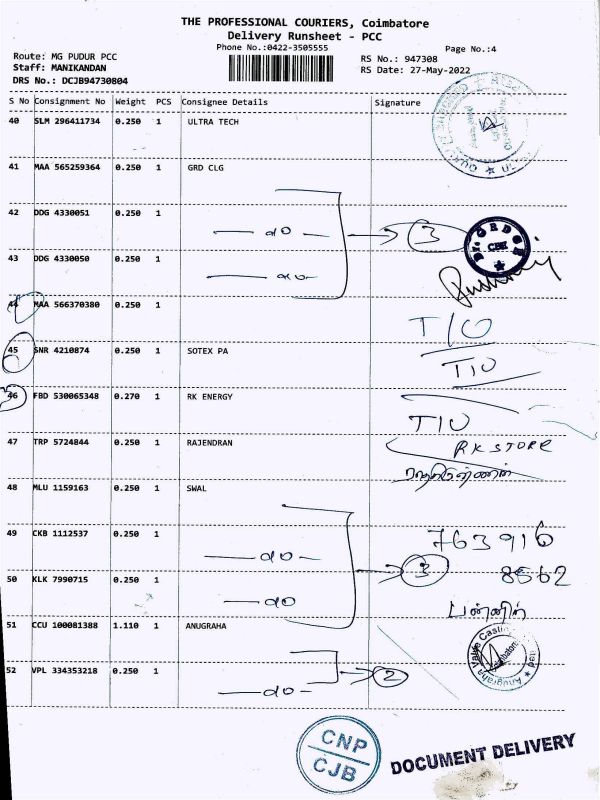 THE PROFESSIONAL COURIERS, Coimbatore
Delivery Runsheet - PCC
Phone No.:0422-3505555
Page No.:4
Route: MG PUDUR PCC
RS No.: 947308
Staff: MANIKANDAN
RS Date: 27-May-2022
DRS No.: DCJB94730804
S No Consignment No Weight PCS Consignee Details Signature
40 SLM 296411734 0.250 1 ULTRA TECH
41 MAA 565259364 0.250 1 GRD CLG
42 DDG 4330051 0.250 1 — do — 3
43 DDG 4330050 0.250 1 — do —
44 MAA 566370380 0.250 1 T/O
45 SNR 4210874 0.250 1 SOTEX PA T/O
46 FBD 530065348 0.270 1 RK ENERGY T/O
47 TRP 5724844 0.250 1 RAJENDRAN RK STORE
48 MLU 1159163 0.250 1 SWAL
49 CKB 1112537 0.250 1 — do — 763916
50 KLK 7990715 0.250 1 — do 3 8562
51 CCU 100081388 1.110 1 ANUGRAHA
52 VPL 334353218 0.250 1 — do — 2
CNP
CJB
DOCUMENT DELIVERY